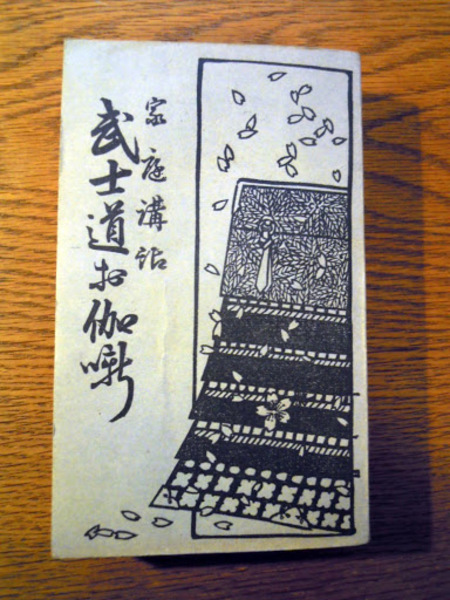 家庭講話
武士道お伽噺